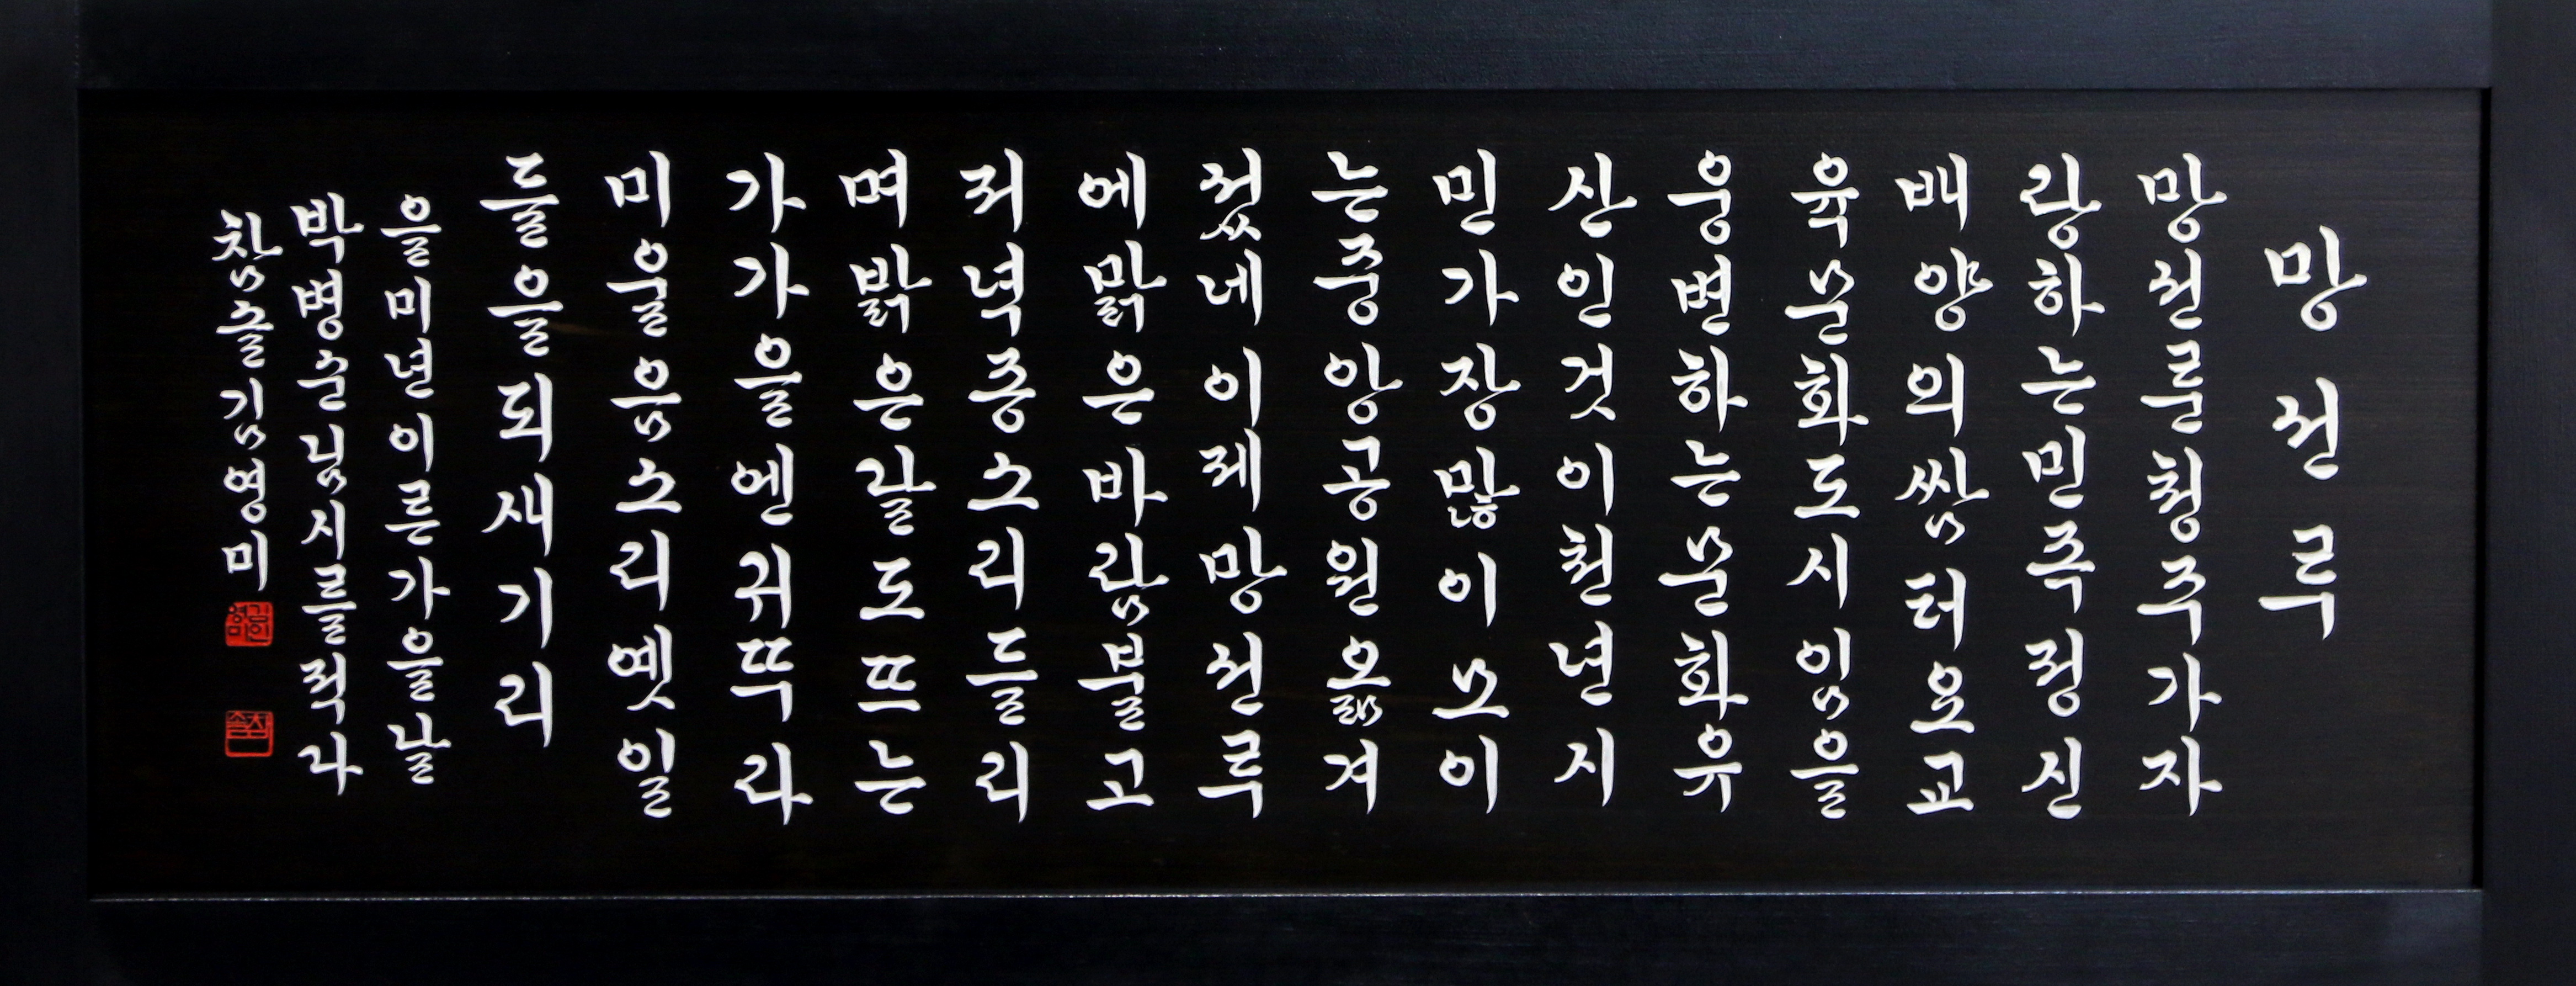 망선루
망선루청주가자
랑하는민족정신
배양의쌈터요교
육문화도시임을
웅변하는문화유
산인것이천년시
민가장많이모이
는중앙공원옮겨
졌네이제망선루
에맑은바람불고
저녁종소리들리
며밝은달도뜨는
가가을엔귀뚜라
미울음소리옛일
들을되새기리
을미년이른가을날
박병순님시를적다
참솔김영미